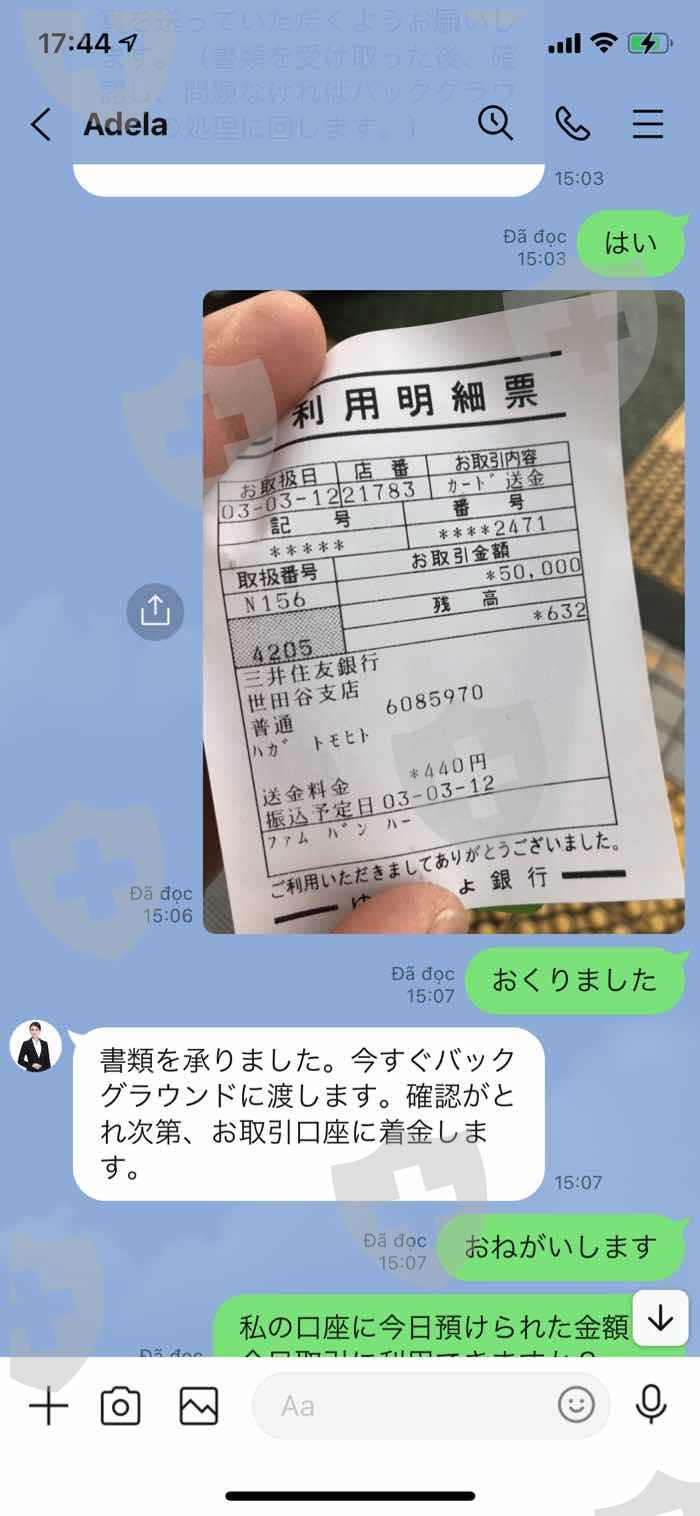 裏を送っていただくようお願いし
ます。（書類を受け取った後、確
認し、問題なければバックグラウ
の処理に回します。）
17:44
Adela
15:03
はい
Đã đọc
15:03
利用明細票
お取扱日 店番 お取引内容
03-03-12 21783 カード送金
記号 番号
***** ****2471
取扱番号 お取引金額
N156 *50,000
残高
*632
4205
三井住友銀行
世田谷支店
普通 6085970
ハガ トモヒト
送金料金 *440円
振込予定日 03-03-12
ファム バン ハー
ご利用いただきましてありがとうございました。
ょ銀行
Đã đọc
15:06
おくりました
Đã đọc
15:07
書類を承りました。今すぐバック
グラウンドに渡します。確認がと
れ次第、お取引口座に着金しま
す。
15:07
おねがいします
Đã đọc
15:07
私の口座に今日預けられた金額
今日取引に利用できますか？
Đã đọc
Aa